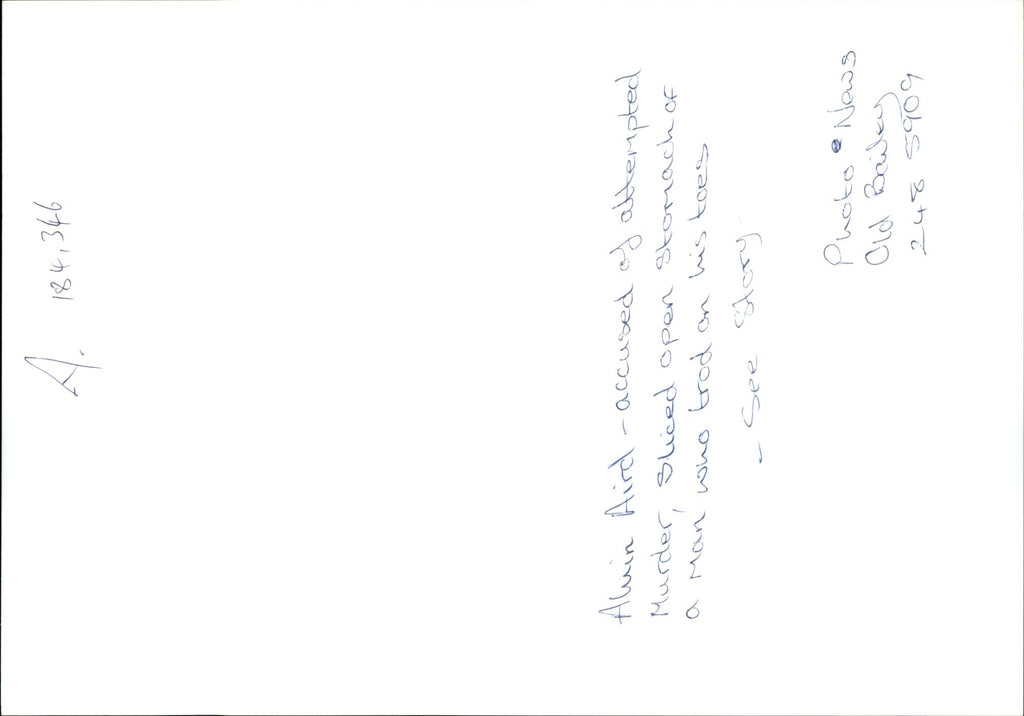 A. 184,346
Alvin Aird - accused of attempted
Murder, Sliced open Stomach of
a man who trod on his toes
- See Story
Photo News
Old Bailey
248 5909